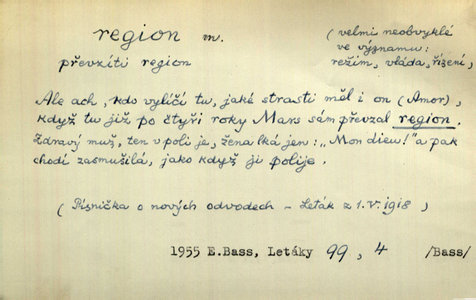 region m. (velmi neobvyklé
ve významu:
převzíti region režim, vláda, řízení,
Ale ach, kdo vylíčí tu, jaké strasti měl i on (Amor),
když tu již po čtyři roky Mars sám převzal region.
Zdravý muž, ten v poli je, žena lká jen: „Mon dieu!" a pak
chodí zasmušilá, jako když ji polije.
(Písnička o nových odvodech – Leták z 1.V.1918,
1955 E.Bass, Letáky 99, 4 /Bass/